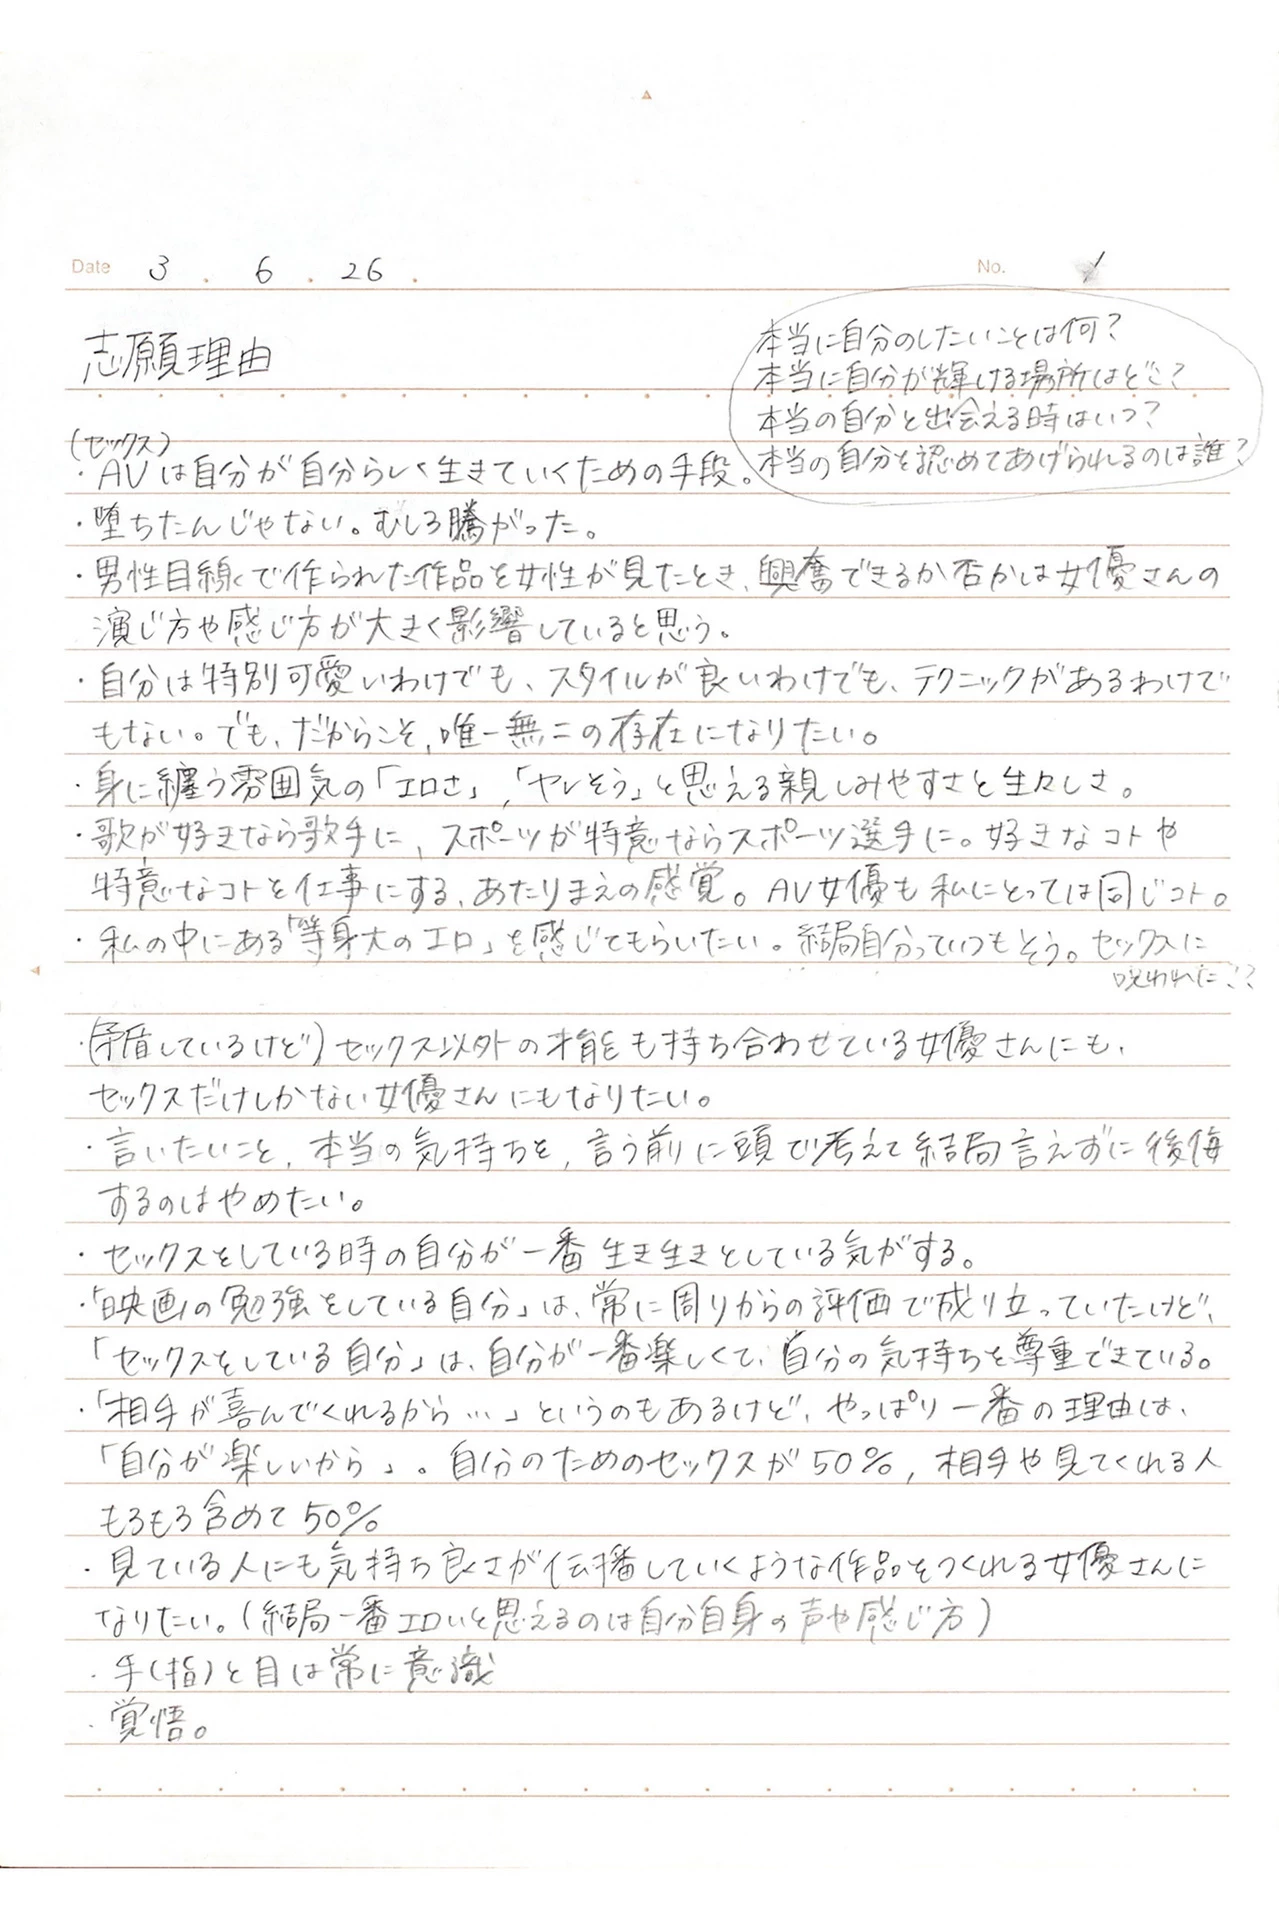 Date 3 . 6 . 26 .
No. 1
志願理由
本当に自分のしたいことは何?
本当に自分が輝ける場所はどこ?
本当の自分と出会える時はいつ?
本当の自分を認めてあげられるのは誰?
(セックス)
・AVは自分が自分らしく生きていくための手段。
・堕ちたんじゃない。むしろ騰がった。
・男性目線で作られた作品を女性が見たとき、興奮できるか否かは女優さんの
演じ方や感じ方が大きく影響していると思う。
・自分は特別可愛いわけでも、スタイルが良いわけでも、テクニックがあるわけで
もない。でも、だからこそ、唯一無二の存在になりたい。
・身に纏う雰囲気の「エロさ」,「ヤレそう」と思える親しみやすさと生々しさ。
・歌が好きなら歌手に、スポーツが特意ならスポーツ選手に。好きなコトや
特意なコトを仕事にする、あたりまえの感覚。AV女優も私にとっては同じコト。
・私の中にある「等身大のエロ」を感じてもらいたい。結局自分っていつもそう。セックスに
呪われた??
・(矛盾しているけど)セックス以外の才能も持ち合わせている女優さんにも、
セックスだけしかない女優さんにもなりたい。
・言いたいこと、本当の気持ちを、言う前に頭で考えて結局言えずに後悔
するのはやめたい。
・セックスをしている時の自分が一番生き生きとしている気がする。
・「映画の勉強をしている自分」は、常に周りからの評価で成り立っていたけど、
「セックスをしている自分」は、自分が一番楽しくて、自分の気持ちを尊重できている。
・「相手が喜んでくれるから…」というのもあるけど、やっぱり一番の理由は、
「自分が楽しいから」。自分のためのセックスが50%,相手や見てくれる人
もろもろ含めて50%
・見ている人にも気持ち良さが伝播していくような作品をつくれる女優さんに
なりたい。(結局一番エロいと思えるのは自分自身の声や感じ方)
・手(指)と目は常に意識
・覚悟。